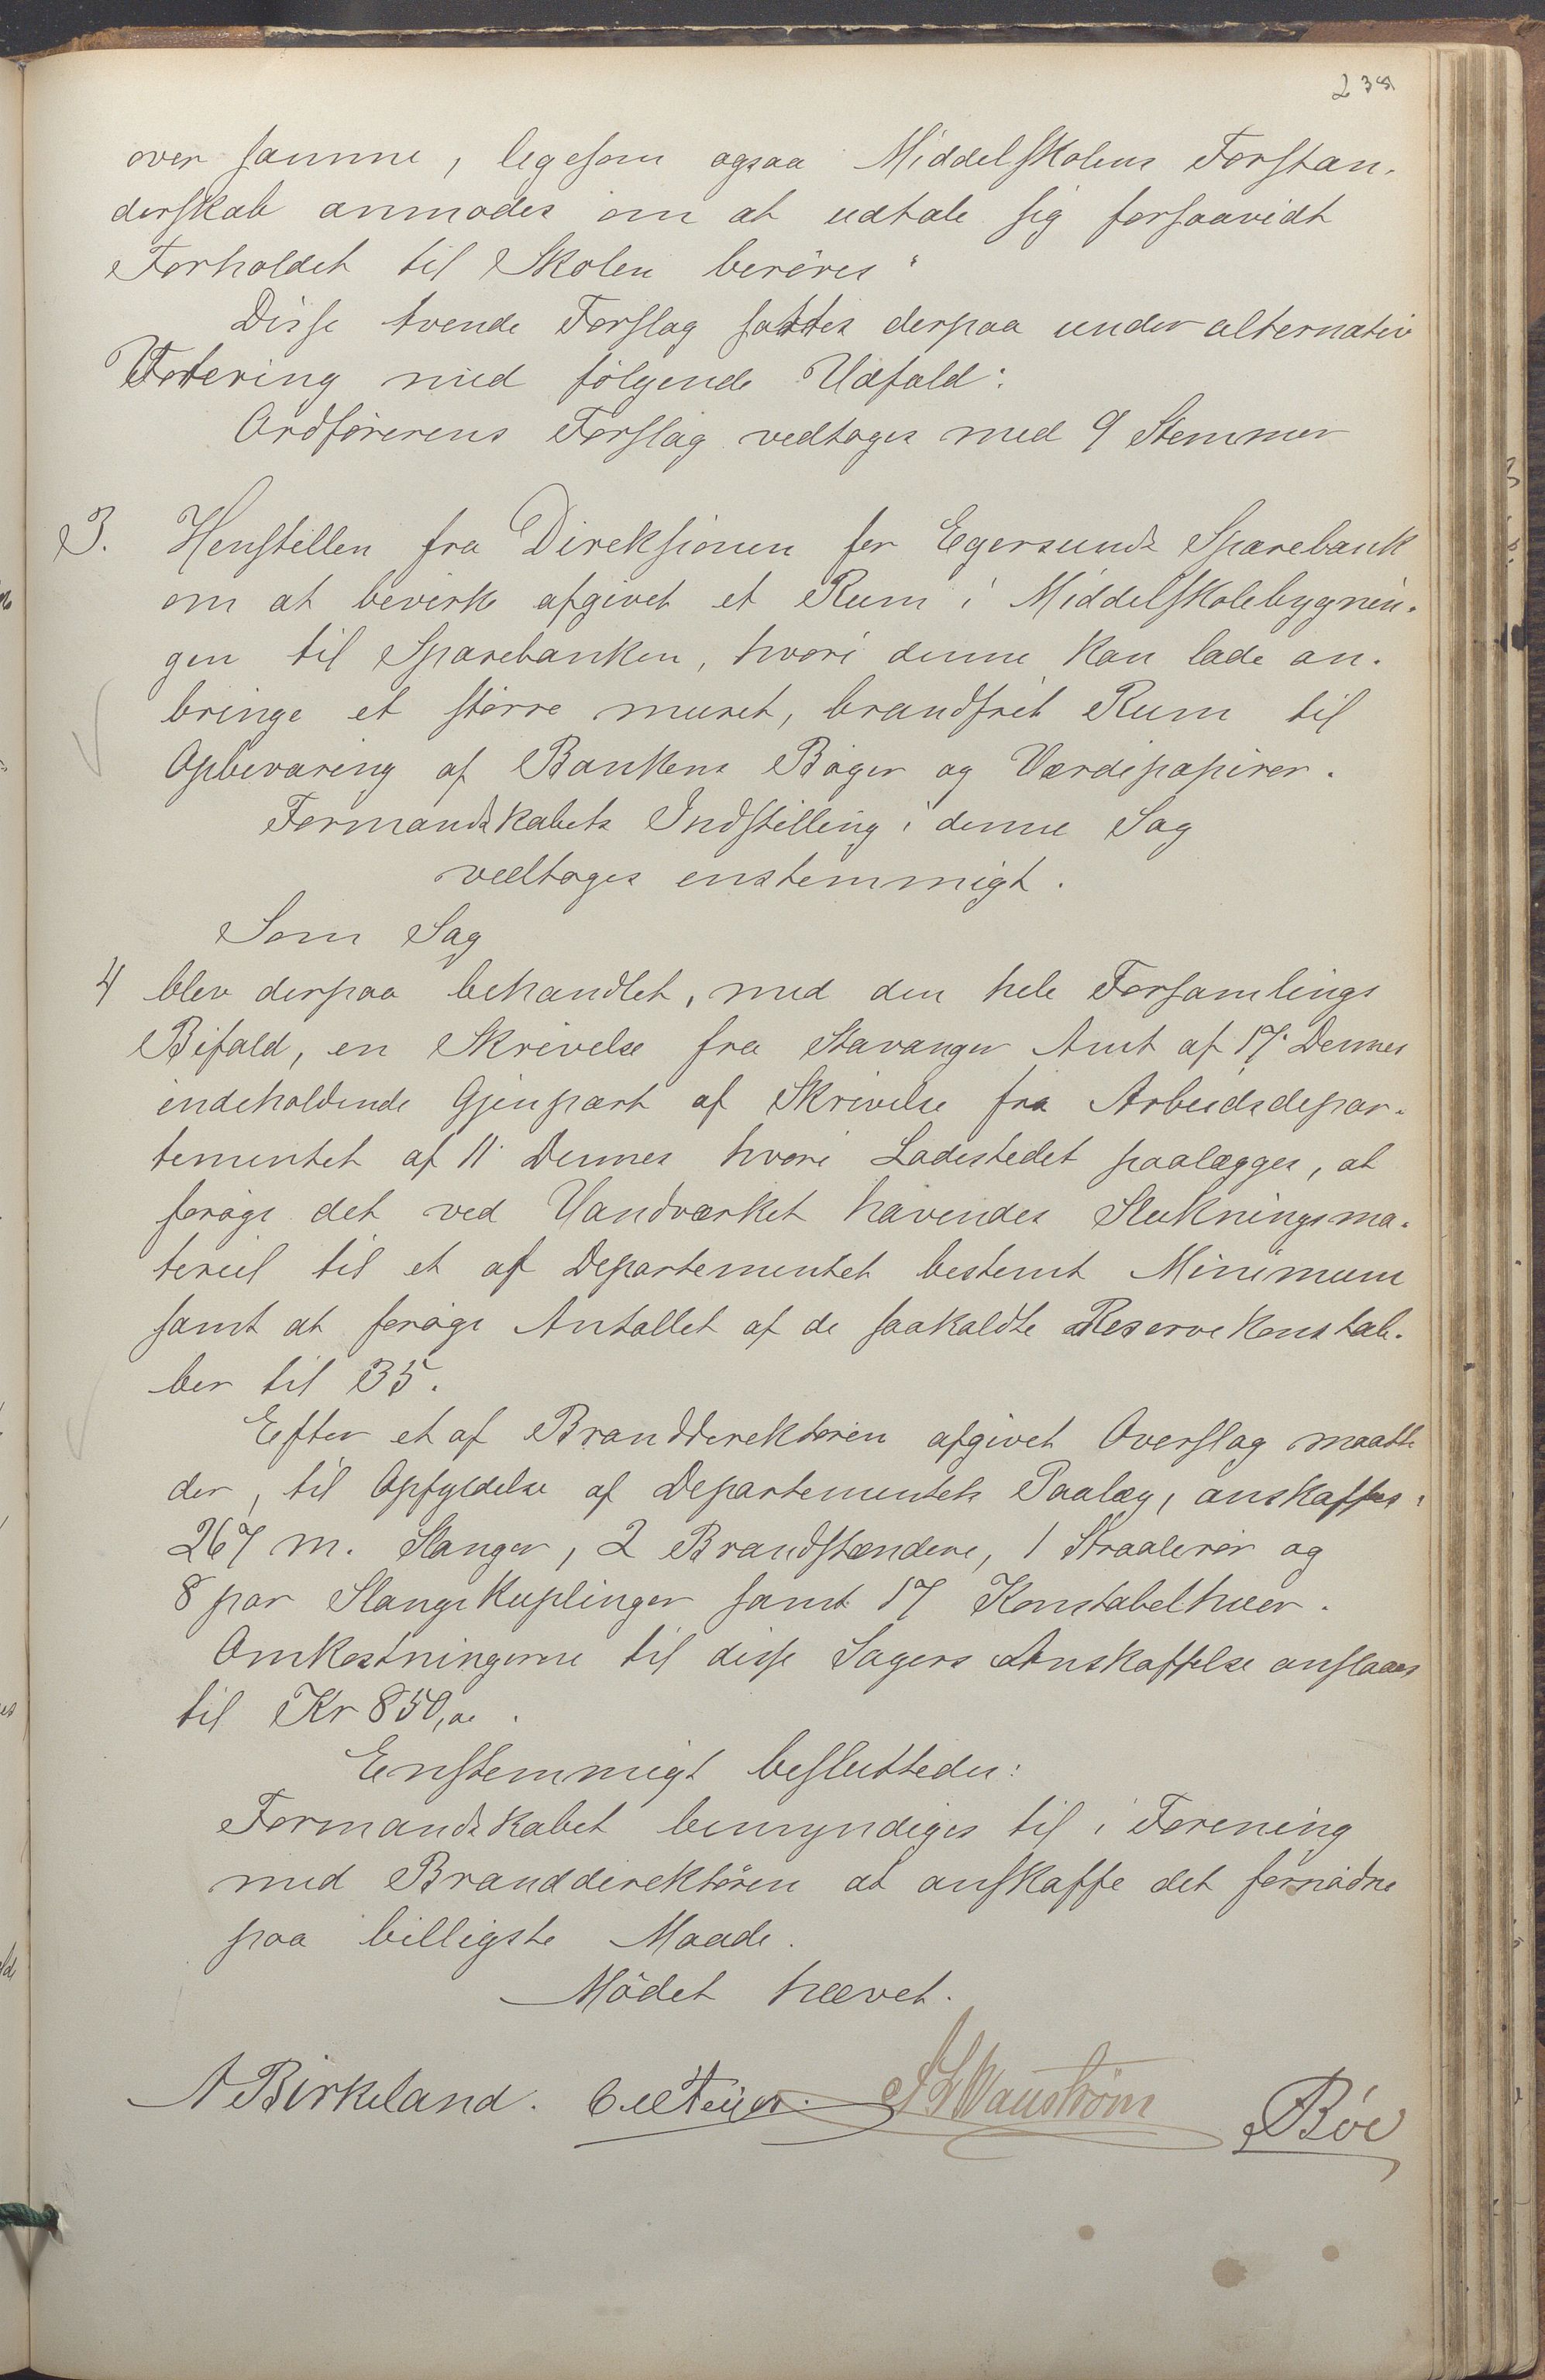 over samme, ligesom ogsaa Middelskolens Forstan-
derskab anmodes om at udtale sig forsaavidt
Forholdet til Skolen berøres"
Disse tvende Forslag sattes derpaa under alternativ
Votering med følgende Udfald:
Ordførerens Forslag vedtoges med 9 Stemmer
3. Henstillen fra Direksionen for Egersunds Sparebank
om at bevirke afgivet et Rum i Middelskolebygnin-
gen til Sparebanken, hvori denne kan lade an-
bringe et større muret, brandfrit Rum til
Opbevaring af Bankens Bøger og Værdipapirer.
Formandskabets Indstilling i denne Sag
vedtoges enstemmigt.
Som Sag
4 blev derpaa behandlet, med den hele Forsamlings
Bifald, en Skrivelse fra Stavanger Amt af 17. Dennes
indeholdende Gjenpart af Skrivelse fra Arbeidsdepar-
tementet af 11. Dennes hvori Ladestedet paalægges, at
forøge det ved Vandværket havendes Slukningsma-
teriel til et af Departementet bestemt Minimum
samt at forøge Antallet af de saakaldte Reservekonstab-
ber til 35.
Efter et af Branddirektøren afgivet Overslag maatte
der, til Opfyldelse af Departementets Paalæg, anskaffes:
267 m. Slanger, 2 Brandstændere, 1 Straalerør og
8 par Slangekuplinger samt 17 Konstabelhuer.
Omkostningerne til disse Sagers Anskaffelse anslaaes
til Kr 850,00.
Enstemmigt besluttedes:
Formandskabet bemyndiges til i Forening
med Branddirektøren at anskaffe det fornødne
paa billigste Maade.
Mødet hævet.
A Birkeland. Feyer. Wanström Bøe